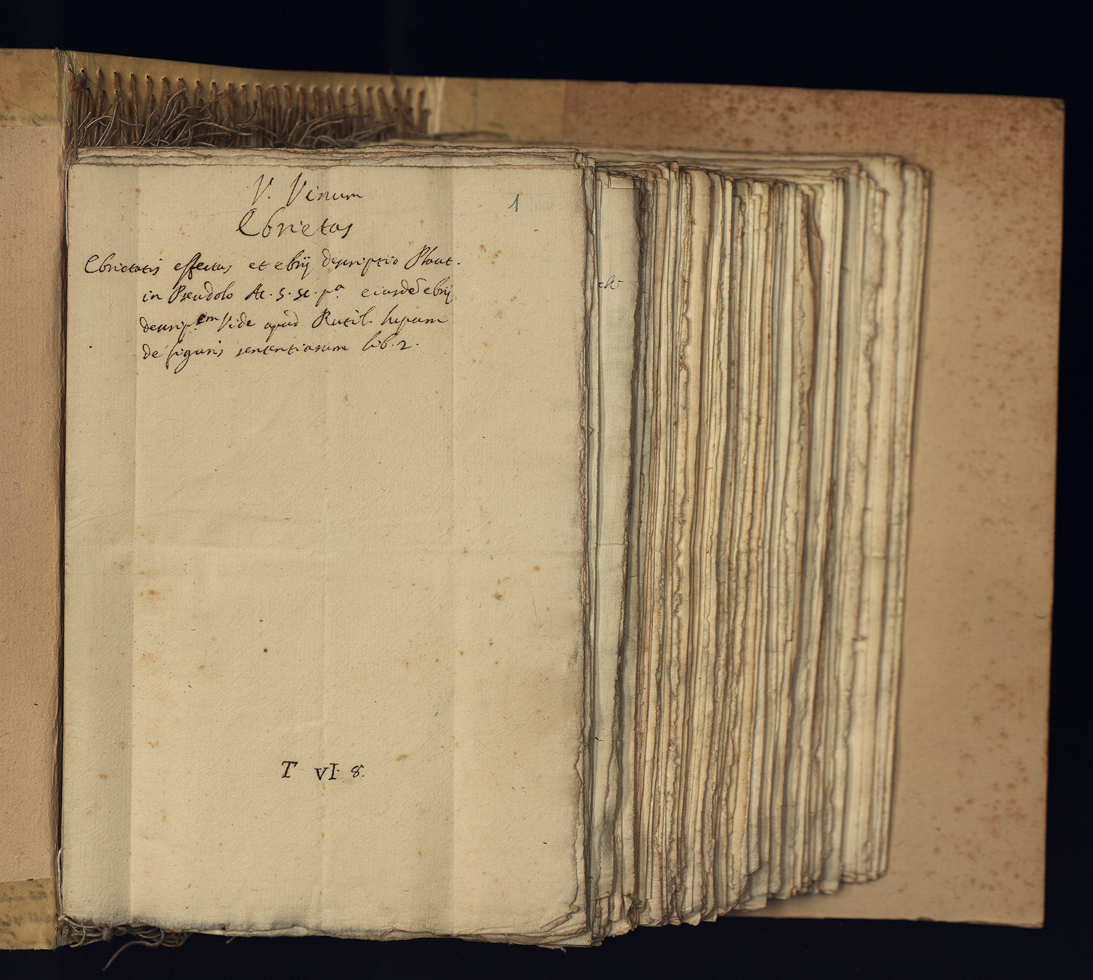 V. Vinum
1
Ebrietas
Ebrietatis effectus et ebrij descriptio Plaut.
in Pseudolo Ac. 5. sc. pa. eiusdē ebrij
descript.em Vide apud Rutil. lupum
de figuris sententiarum lib. 2.
T VI 8.